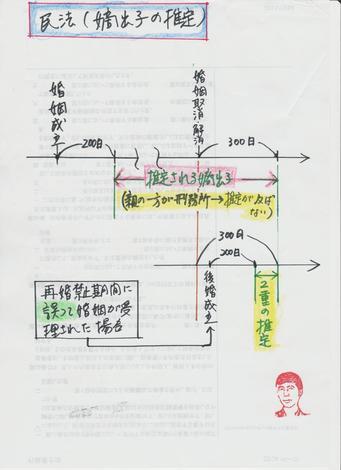 民法(嫡出子の推定)
婚姻成立
200日
婚姻取消・解消
300日
推定される嫡出子
(親の一方が刑務所→推定が及ばない)
300日
200日
後婚成立
2重の推定
再婚禁止期間に
誤って婚姻が受
理された場合